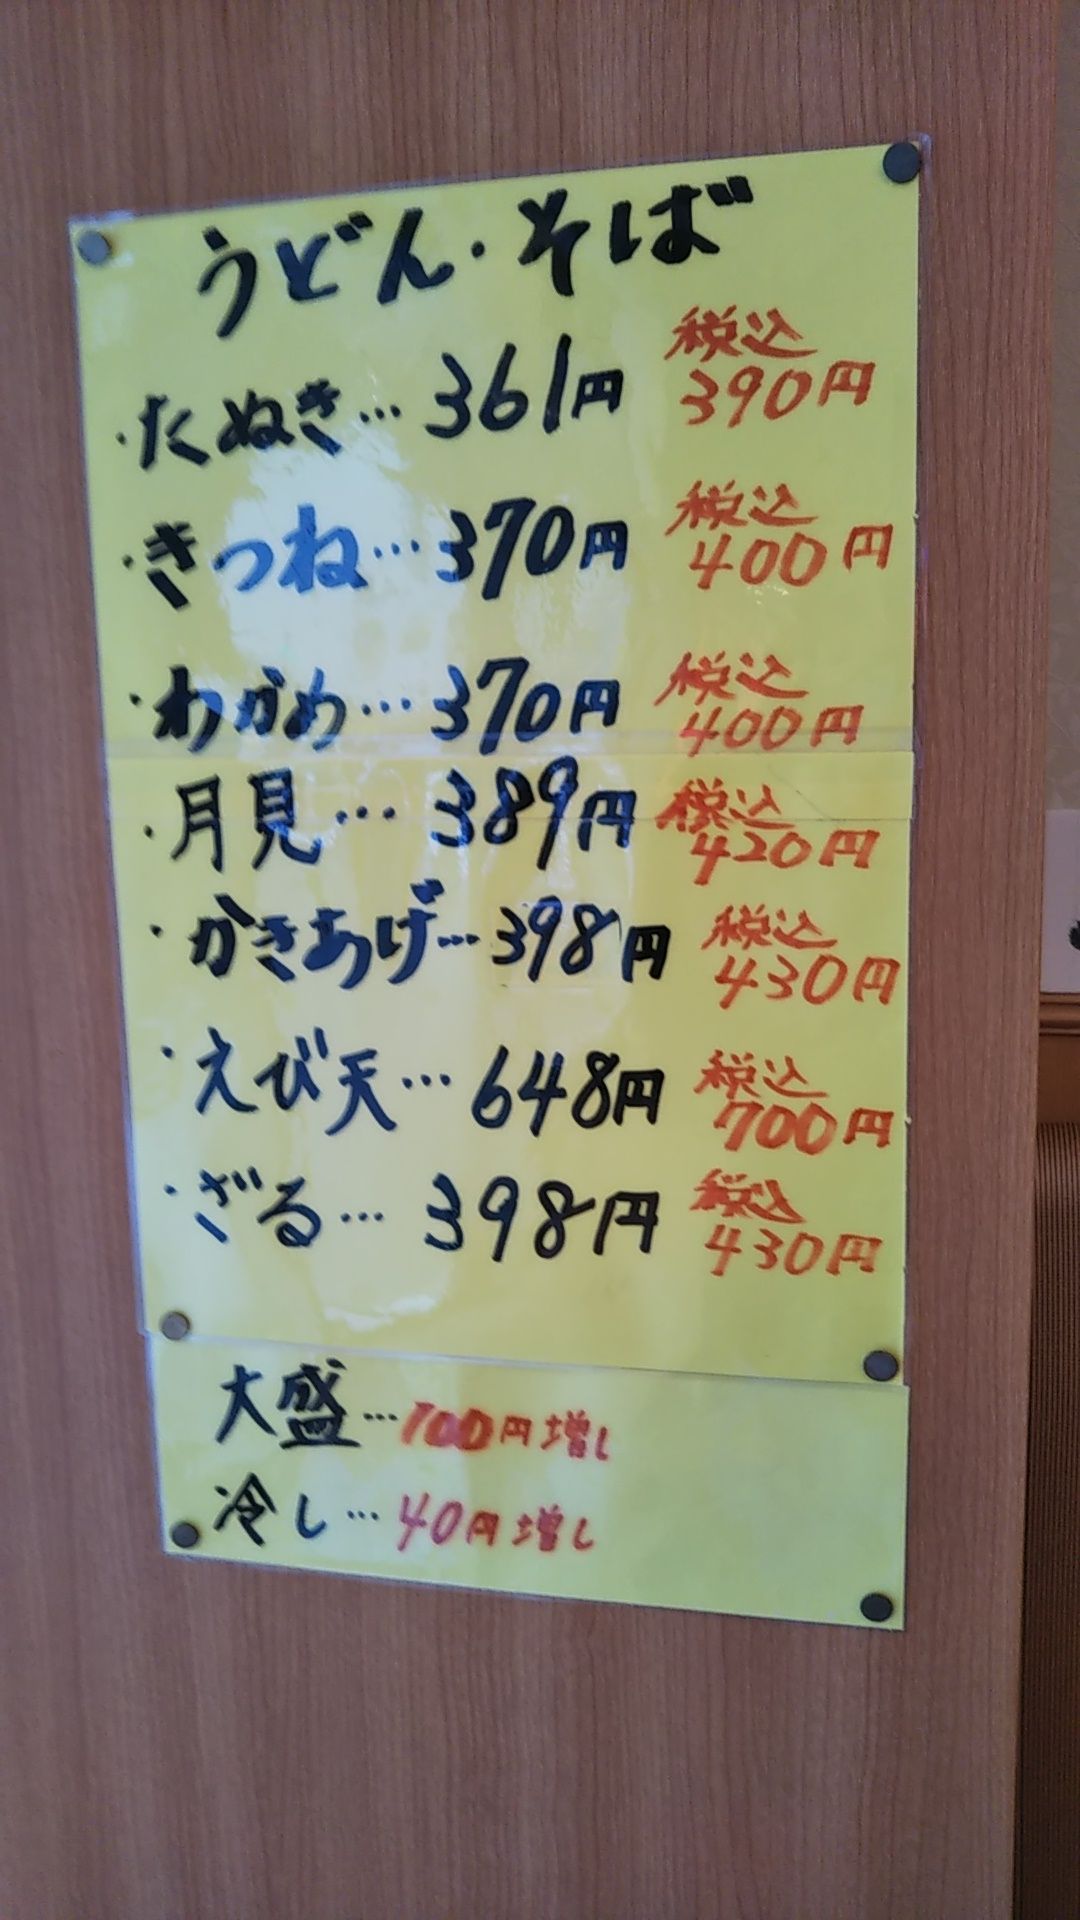 うどん・そば
・たぬき…361円 税込390円
・きつね…370円 税込400円
・わかめ…370円 税込400円
・月見…389円 税込420円
・かきあげ…398円 税込430円
・えび天…648円 税込700円
・ざる…398円 税込430円
大盛…100円増し
冷し…40円増し